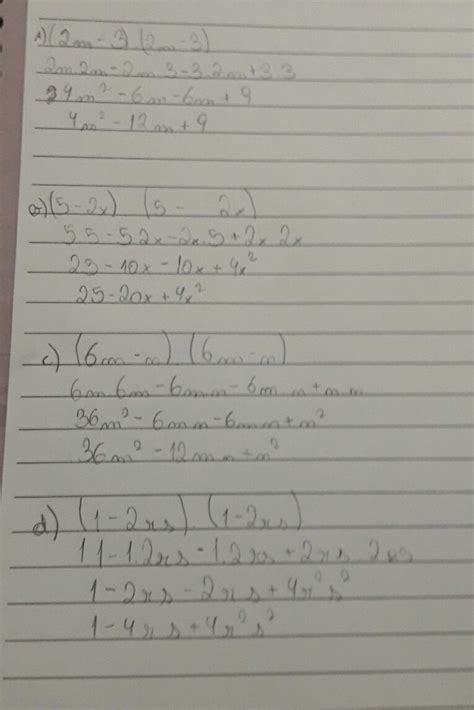 A) (2m - 3) (2m - 3)
2m.2m - 2m.3 - 3.2m + 3.3
4m² - 6m - 6m + 9
4m² - 12m + 9
b) (5 - 2x) (5 - 2x)
5.5 - 5.2x - 2x.5 + 2x.2x
25 - 10x - 10x + 4x²
25 - 20x + 4x²
c) (6m - n) . (6m - n)
6m.6m - 6m.n - 6m.n + n.n
36m² - 6m.n - 6m.n + n²
36m² - 12m.n + n²
d) (1 - 2rs) . (1 - 2rs)
1.1 - 1.2rs - 1.2rs + 2rs.2rs
1 - 2rs - 2rs + 4r²s²
1 - 4rs + 4r²s²